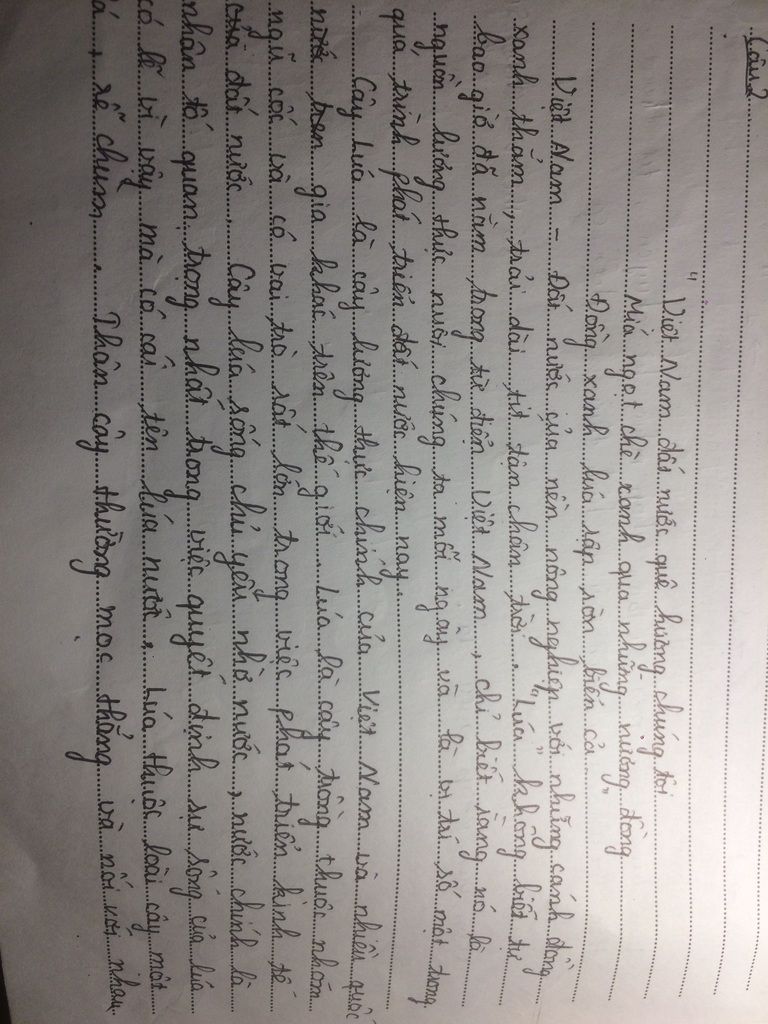 Câu 2
" Việt Nam đất nước quê hương chúng tôi
Mía ngọt chè xanh qua những nương đồng
Đồng xanh lúa rập rờn biển cả "
Việt Nam - Đất nước của nền nông nghiệp với những cánh đồng
xanh thẳm, trải dài tít tận chân trời. "Lúa" không biết tự
bao giờ đã nằm trong từ điển Việt Nam, chỉ biết rằng nó là
nguồn lương thực nuôi chúng ta mỗi ngày và là vị trí số một trong
quá trình phát triển đất nước hiện nay.
Cây lúa là cây lương thực chính của Việt Nam và nhiều quốc
gia khác trên thế giới. Lúa là cây trồng thuộc nhóm
ngũ cốc và có vai trò rất lớn trong việc phát triển kinh tế
của đất nước. Cây lúa sống chủ yếu nhờ nước, nước chính là
nhân tố quan trọng nhất trong việc quyết định sự sống của lúa
có lẽ vì vậy mà có cái tên lúa nước. Lúa thuộc loài cây một
lá, rễ chùm. Thân cây thường mọc thẳng và nối với nhau